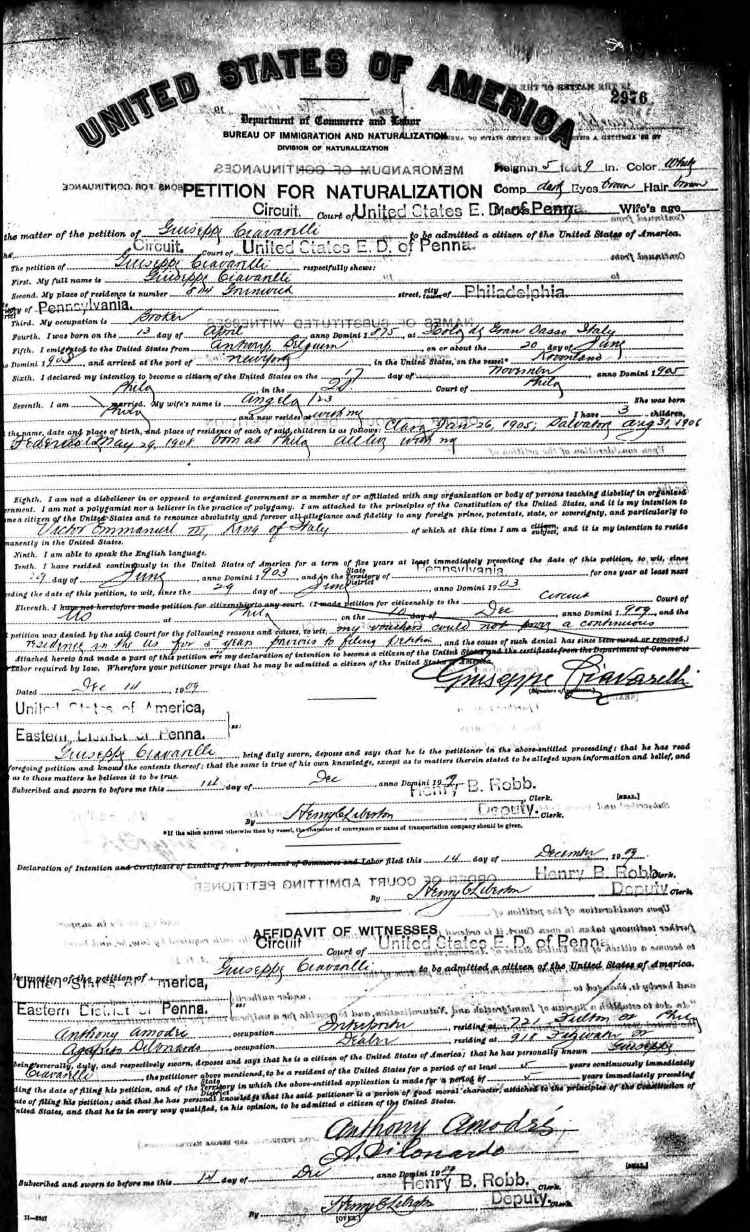 UNITED STATES OF AMERICA
2976
Department of Commerce and Labor
BUREAU OF IMMIGRATION AND NATURALIZATION
DIVISION OF NATURALIZATION
Height 5 feet 9 in. Color White
PETITION FOR NATURALIZATION
Comp dark Eyes brown Hair brown
Wife's age
Circuit. Court of United States E. D. of Penna.
the matter of the petition of Giuseppe Ciavarelli to be admitted a citizen of the United States of America.
Circuit. Court of United States E. D. of Penna.
The petition of Giuseppe Ciavarelli respectfully shows:
First. My full name is Giuseppe Ciavarelli
Second. My place of residence is number street, city town of Philadelphia.
of Pennsylvania.
Third. My occupation is Broker
Fourth. I was born on the 13 day of April anno Domini 1875 at Isola de Gran Sasso Italy
Fifth. I emigrated to the United States from Antwerp, Belguim on or about the 20 day of June
o Domini 1903, and arrived at the port of New York, in the United States, on the vessel* Kroonland
Sixth. I declared my intention to become a citizen of the United States on the 17 day of November anno Domini 1905
Phila in the Court of Phila
Seventh. I am married. My wife's name is Angela She was born
Phila and now resides at with me I have 3 children,
the name, date and place of birth, and place of residence of each of said children is as follows: Clara Jan 26, 1905; Salvatore Aug 31, 1906
May 29, 1908 born at Phila all live with me
Eighth. I am not a disbeliever in or opposed to organized government or a member of or affiliated with any organization or body of persons teaching disbelief in organized
ernment. I am not a polygamist nor a believer in the practice of polygamy. I am attached to the principles of the Constitution of the United States, and it is my intention to
me a citizen of the United States and to renounce absolutely and forever all allegiance and fidelity to any foreign prince, potentate, state, or sovereignty, and particularly to
Victor Emmanuel III, King of Italy of which at this time I am a citizen subject, and it is my intention to reside
manently in the United States.
Ninth. I am able to speak the English language.
Tenth. I have resided continuously in the United States of America for a term of five years at least immediately preceding the date of this petition, to wit, since
29 day of June, anno Domini 1903, and in the State Territory District of Pennsylvania for one year at least next
eding the date of this petition, to wit, since 29 day of June anno Domini 1903
Eleventh. I have not heretofore made petition for citizenship to any court. (I made petition for citizenship to the Circuit Court of
US at Phila on the 10 day of Dec anno Domini 1909, and the
petition was denied by the said Court for the following reasons and causes, to wit, my vouchers could not prove a continuous
residence in the US for a year previous to filing petition and the cause of such denial has since been cured or removed.)
Attached hereto and made a part of this petition are my declaration of intention to become a citizen of the United States and the certificate from the Department of Commerce
Labor required by law. Wherefore your petitioner prays that he may be admitted a citizen of the United States of America.
Giuseppe Ciavarelli
Dated Dec 14, 1909
United States of America,
Eastern District of Penna. ss:
Giuseppe Ciavarelli being duly sworn, deposes and says that he is the petitioner in the above-entitled proceeding; that he has read
foregoing petition and knows the contents thereof; that the same is true of his own knowledge, except as to matters therein stated to be alleged upon information and belief, and
as to those matters he believes it to be true.
Subscribed and sworn to before me this 14 day of Dec anno Domini 1909
Henry B. Robb. Clerk. [SEAL.]
By Deputy. Clerk.
*If the alien arrived otherwise than by vessel, the character of conveyance or name of transportation company should be given.
Declaration of Intention and Certificate of Landing from Department of Commerce and Labor filed this 14 day of December, 1909
Henry B. Robb. Clerk.
By Deputy Clerk
AFFIDAVIT OF WITNESSES
Circuit Court of United States E. D. of Penna
matter of the petition of Giuseppe Ciavarelli to be admitted a citizen of the United States of America.
United States of America,
Eastern District of Penna. ss:
Anthony Amodei occupation Interpreter residing at 721 Fulton St Phila
Agapito DiLonardo occupation Dealer residing at 918
being severally, duly, and respectively sworn, deposes and says that he is a citizen of the United States of America; that he has personally known Giuseppe
Ciavarelli the petitioner above mentioned, to be a resident of the United States for a period of at least 5 years continuously immediately
ding the date of filing his petition, and of the State Territory District in which the above-entitled application is made for a period of 5 years immediately preceding
ate of filing his petition; and that he has personal knowledge that the said petitioner is a person of good moral character, attached to the principles of the Constitution of
nited States, and that he is in every way qualified, in his opinion, to be admitted a citizen of the United States.
Anthony Amodei
A. DiLonardo
[SEAL.]
Subscribed and sworn to before me this 14 day of Dec anno Domini 1909
Henry B. Robb. Clerk.
By Deputy. Clerk.
[OVER.]